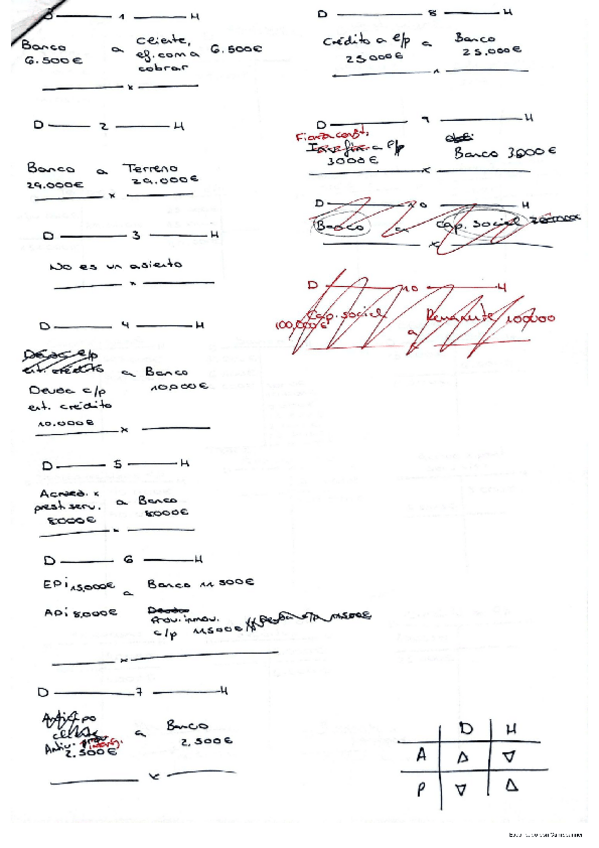 1 H
Banco a Cliente, 6.500€
6.500€ ef. com a
cobrar
x
D 2 H
Banco a Terreno
29.000€ 29.000€
x
D 3 H
No es un asiento
x
D 4 H
Deuda c/p
ent. crédito a Banco
10,000€
Deuda c/p
ent. crédito
10.000€
x
D 5 H
Acreed. x a Banco
prest. serv. 8000€
8000€
x
D 6 H
EPI 15,000€ a Banco 11 500€
API 8,000€ Deuda
Prov. inmov.
c/p 11,500€
x
D 7 H
Anticipo
a Banco
2.500€ 2.500€
x
D 8 H
Crédito a c/p a Banco
25000€ 25.000€
D 9 H
Fianza const.
a c/p Banco 3000€
3000€
x
D 10 H
Banco a Cap. Social
x
D 10 H
Cap. social Remanente 100000
100,000€ a
D H
A △ ▽
P ▽ △